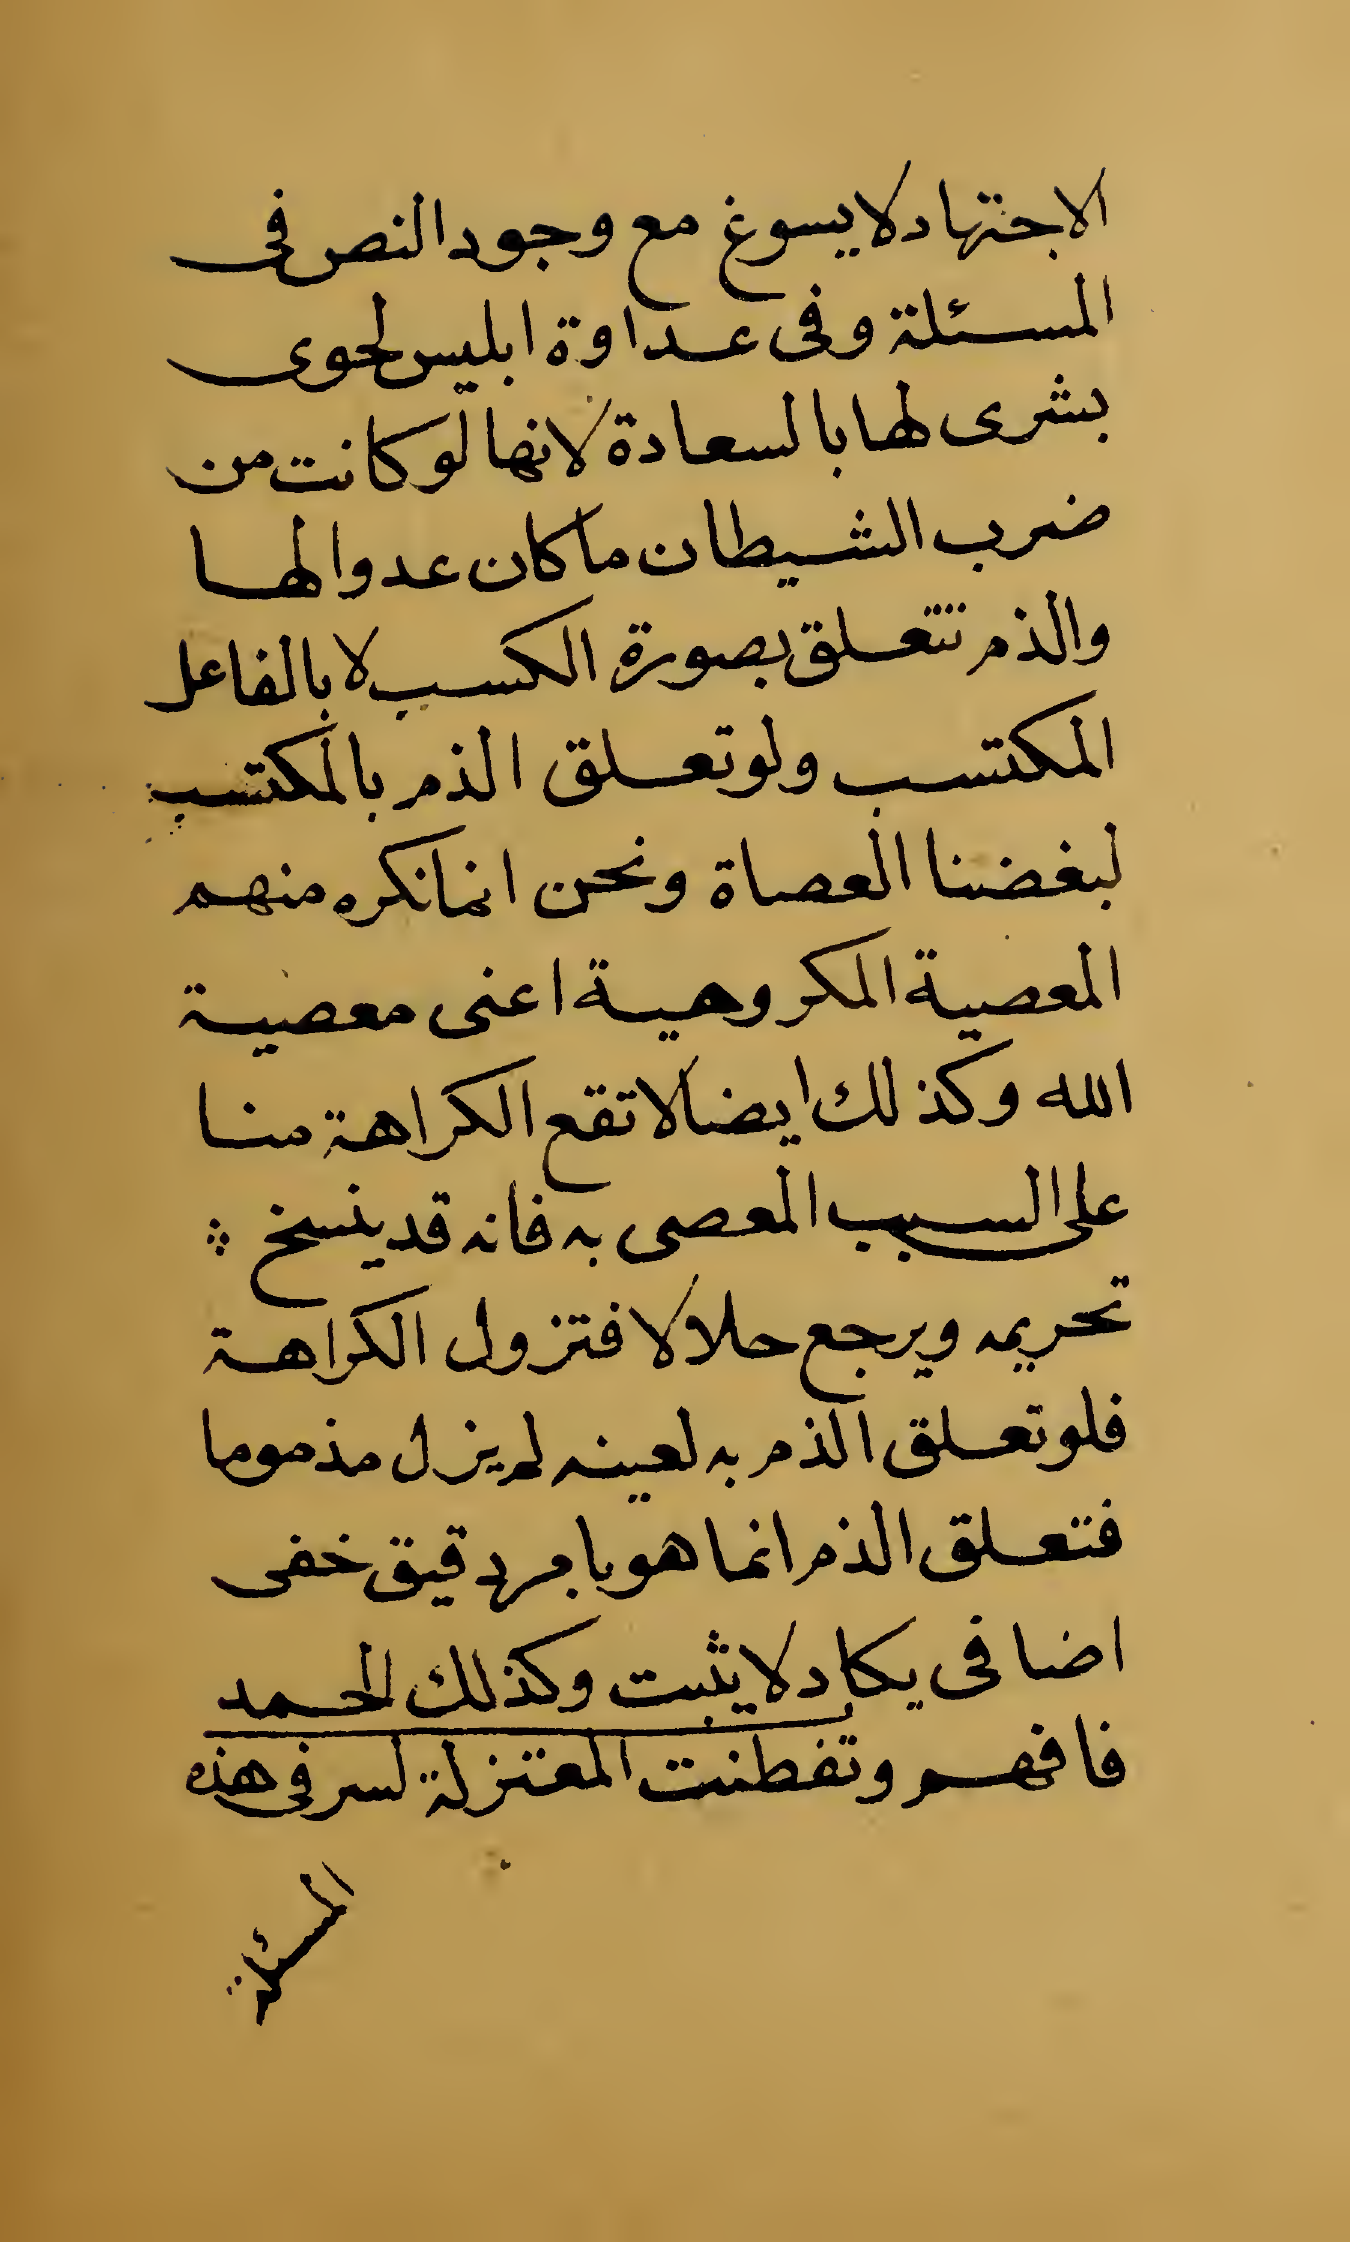 الاجتهاد لا يسوغ مع وجود النص فى
المسئلة وفى عداوة ابليس لحوى
بشرى لها بالسعادة لانها لو كانت من
ضرب الشيطان ما كان عدوا لها
والذم تتعلق بصورة الكسب لا بالفاعل
المكتسب ولو تعلق الذم بالمكتسب
لبغضنا العصاة ونحن انما نكره منهم
المعصية المكروهية اعنى معصية
الله وكذلك ايضا لا تقع الكراهة منا
على السبب المعصى به فانه قد ينسخ
تحريمه ويرجع حلالا فتزول الكراهة
فلو تعلق الذم به لعينه لم يزل مذموما
فتعلق الذم انما هو بامر دقيق خفى
اضافى يكاد لا يثبت وكذلك الحمد
فافهم وتفطنت المعتزلة لسر فى هذه
المسئلة